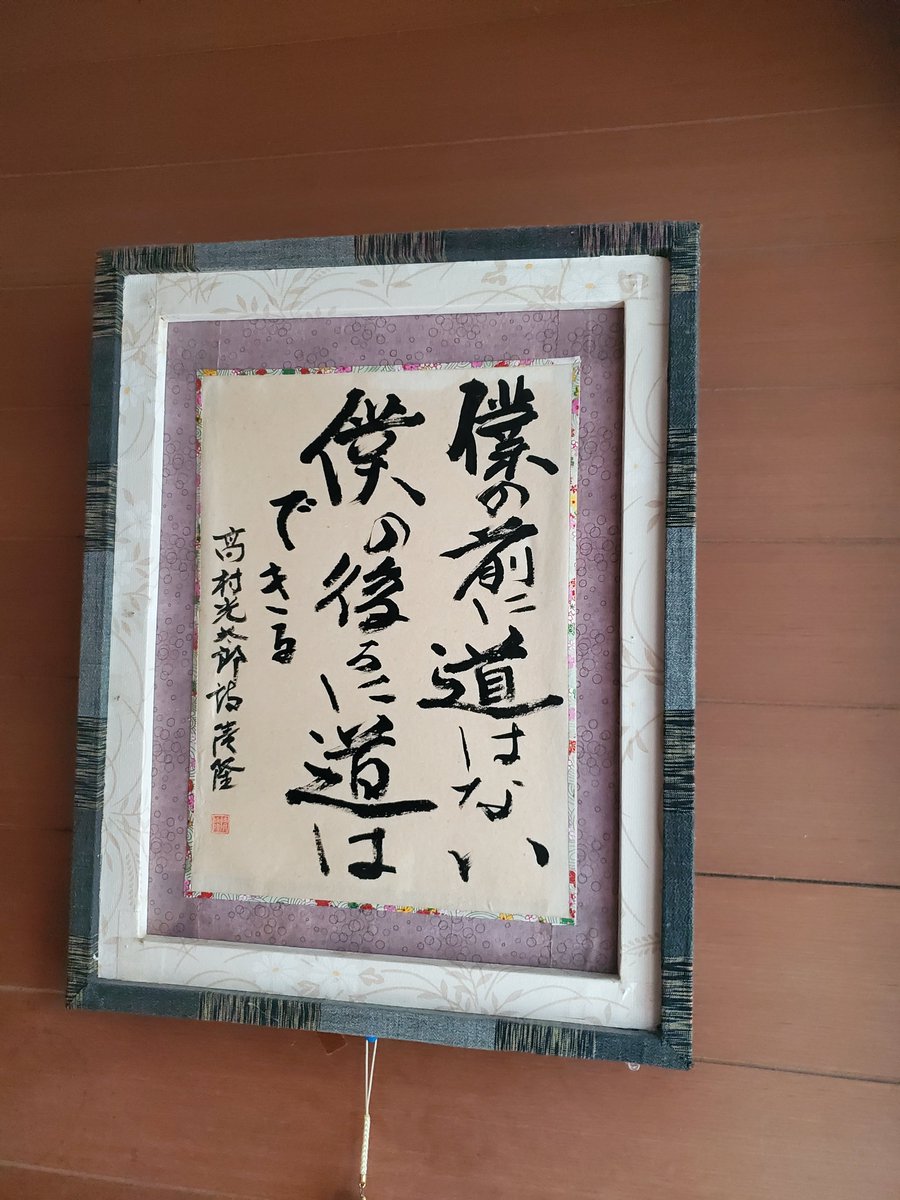 僕の前に道はない
僕の後ろに道は
できる
高村光太郎詩 茂隆